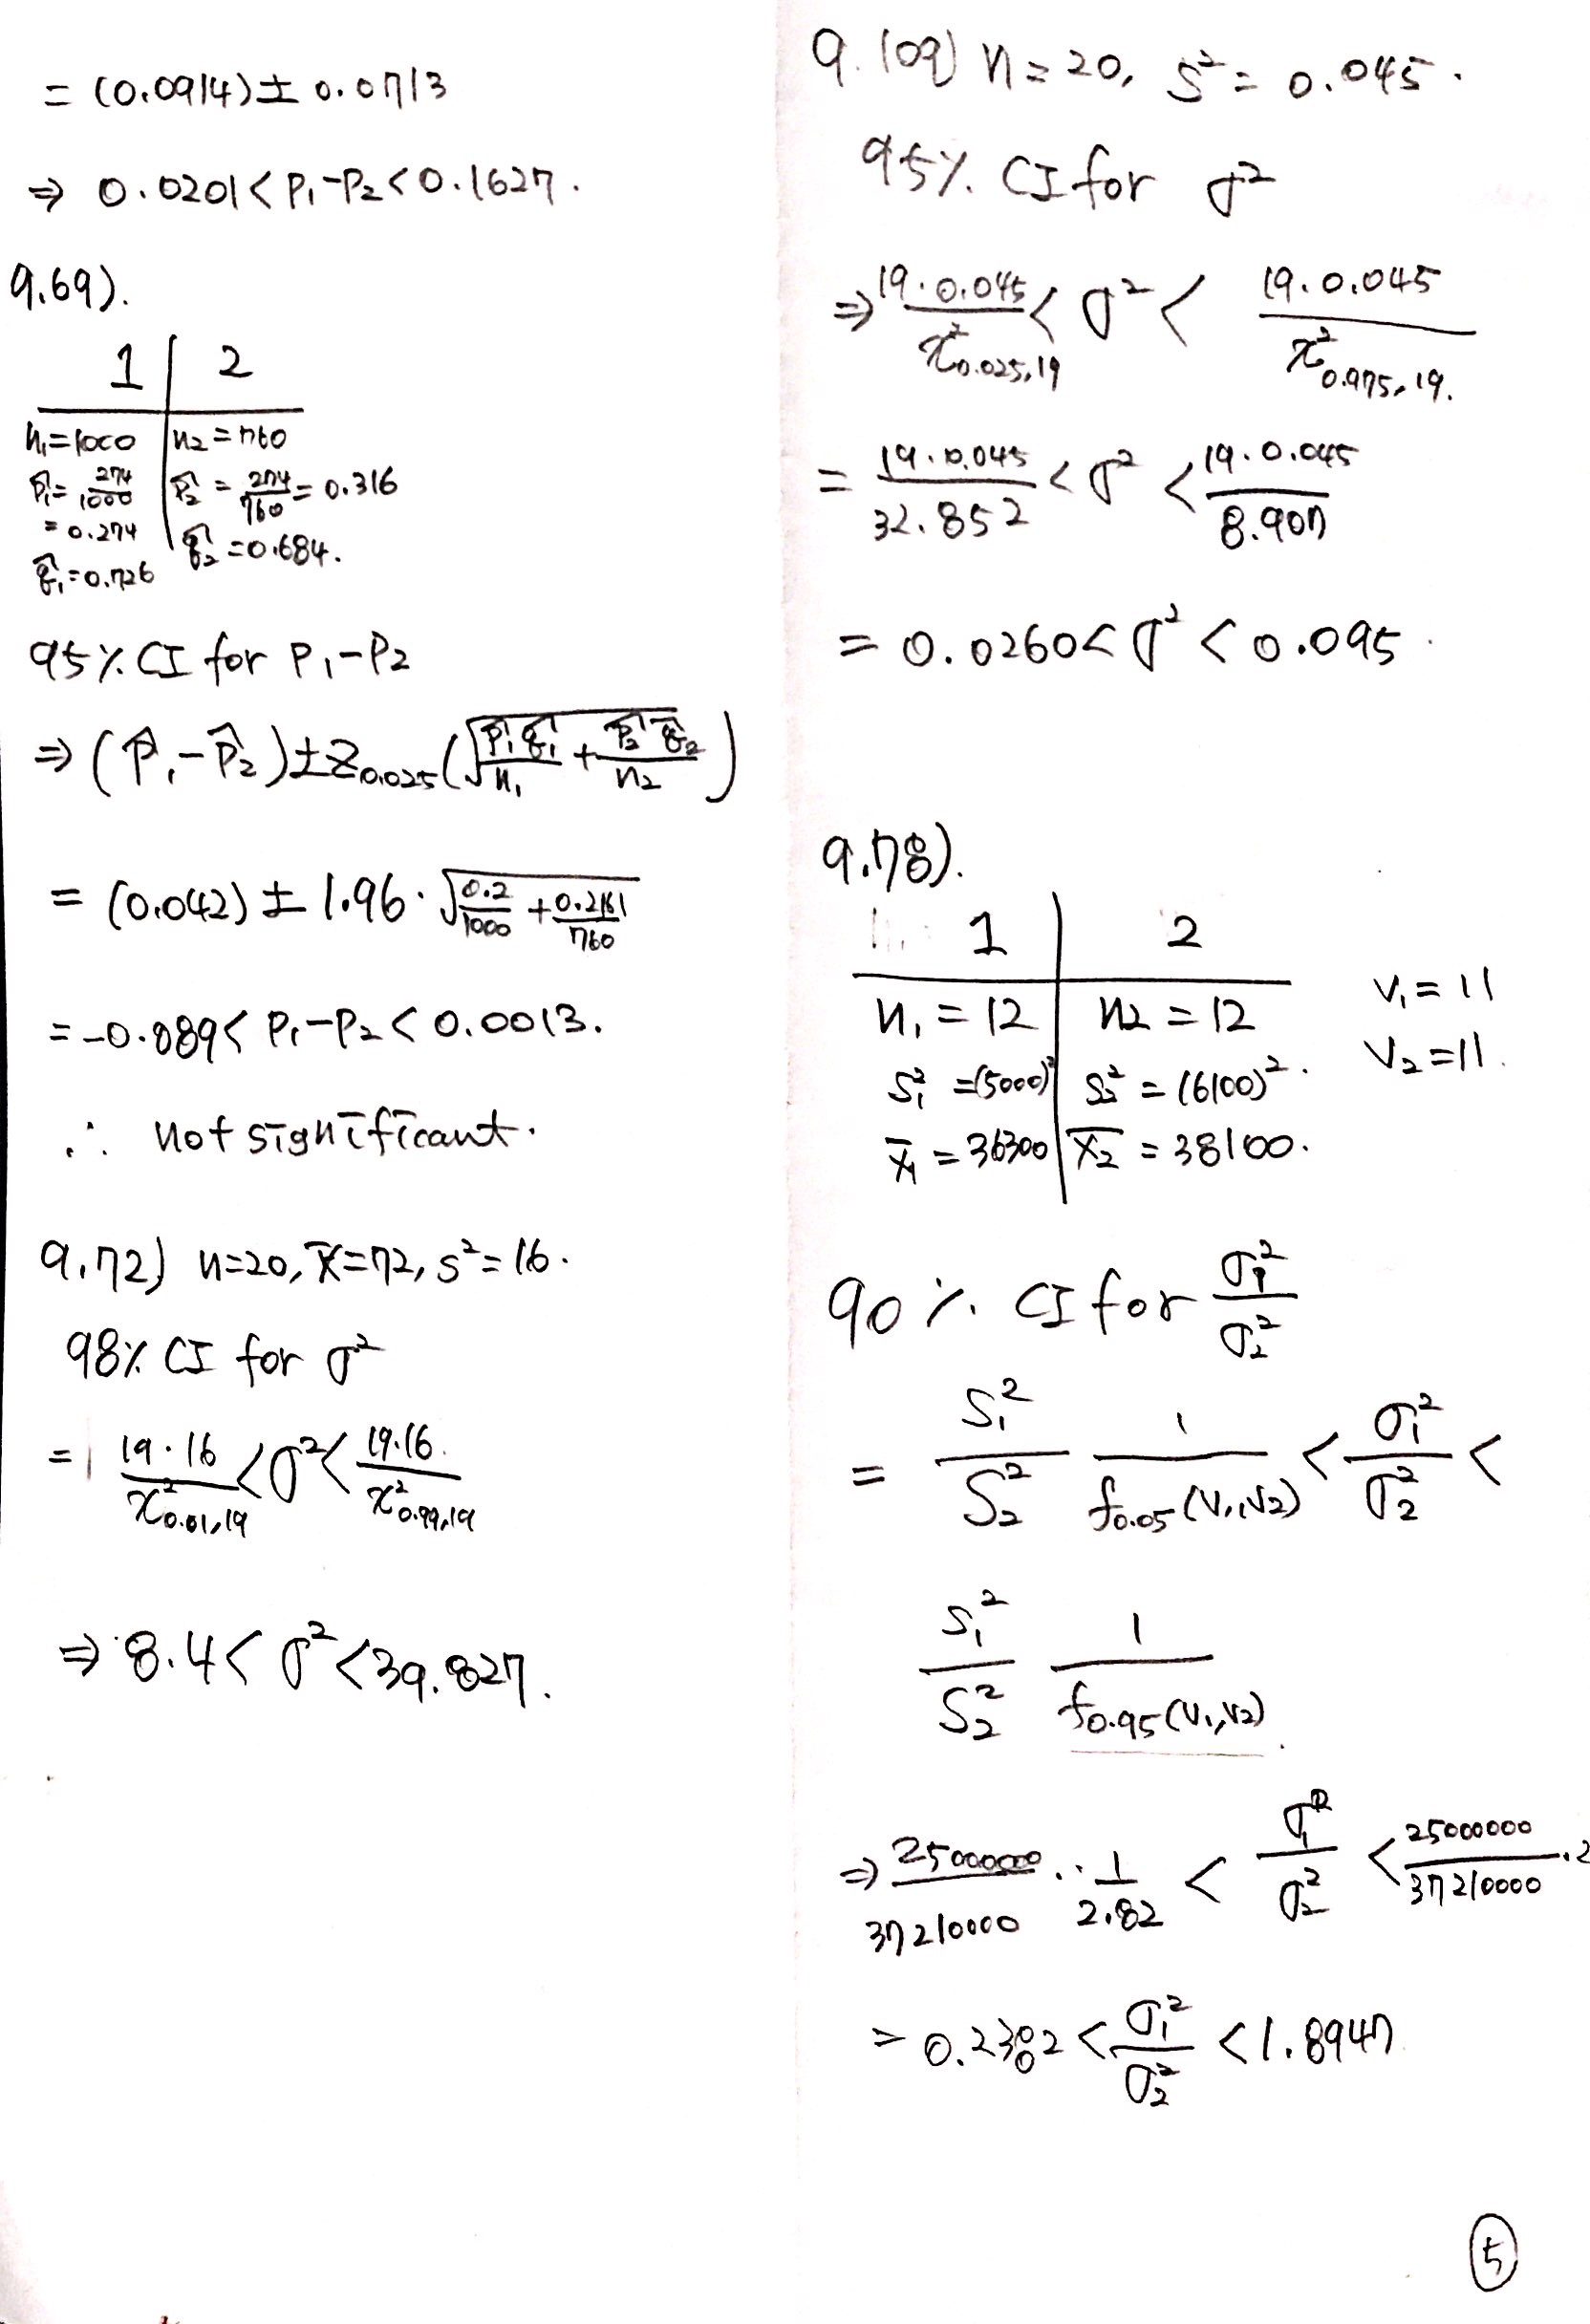 = (0.0914) ± 0.0713
⇒ 0.0201 < P₁-P₂ < 0.1627.
9.69).
1 | 2
n₁=1000 | n₂=760
p̂₁ = 274/1000 | p̂₂ = 274/760 = 0.316
= 0.274 | q̂₂ = 0.684.
q̂₁ = 0.726
95% CI for P₁-P₂
⇒ (p̂₁-p̂₂) ± Z0.025 (√(p̂₁q̂₁/n₁ + p̂₂q̂₂/n₂))
= (0.042) ± 1.96 · √(0.2/1000 + 0.2161/760)
= -0.089 < P₁-P₂ < 0.0013.
∴ not significant.
9.72) n=20, x̄=72, s²=16.
98% CI for σ²
= 19·16/χ²0.01,19 < σ² < 19·16/χ²0.99,19
⇒ 8.4 < σ² < 39.827.
9.109) n=20, S²=0.045.
95% CI for σ²
⇒ 19·0.045/χ²0.025,19 < σ² < 19·0.045/χ²0.975,19.
= 19·0.045/32.852 < σ² < 19·0.045/8.907
= 0.0260 < σ² < 0.095.
9.78).
1 | 2
n₁ = 12 | n₂ = 12 V₁ = 11
S₁² = (5000)² | S₂² = (6100)². V₂ = 11.
x̄₁ = 36300 | x̄₂ = 38100.
90% CI for σ₁²/σ₂²
= S₁²/S₂² 1/f0.05(V₁,V₂) < σ₁²/σ₂² <
S₁²/S₂² 1/f0.95(V₁,V₂).
⇒ 25000000/37210000 · 1/2.82 < σ₁²/σ₂² < 25000000/37210000 · 2
= 0.2382 < σ₁²/σ₂² < 1.8947
5